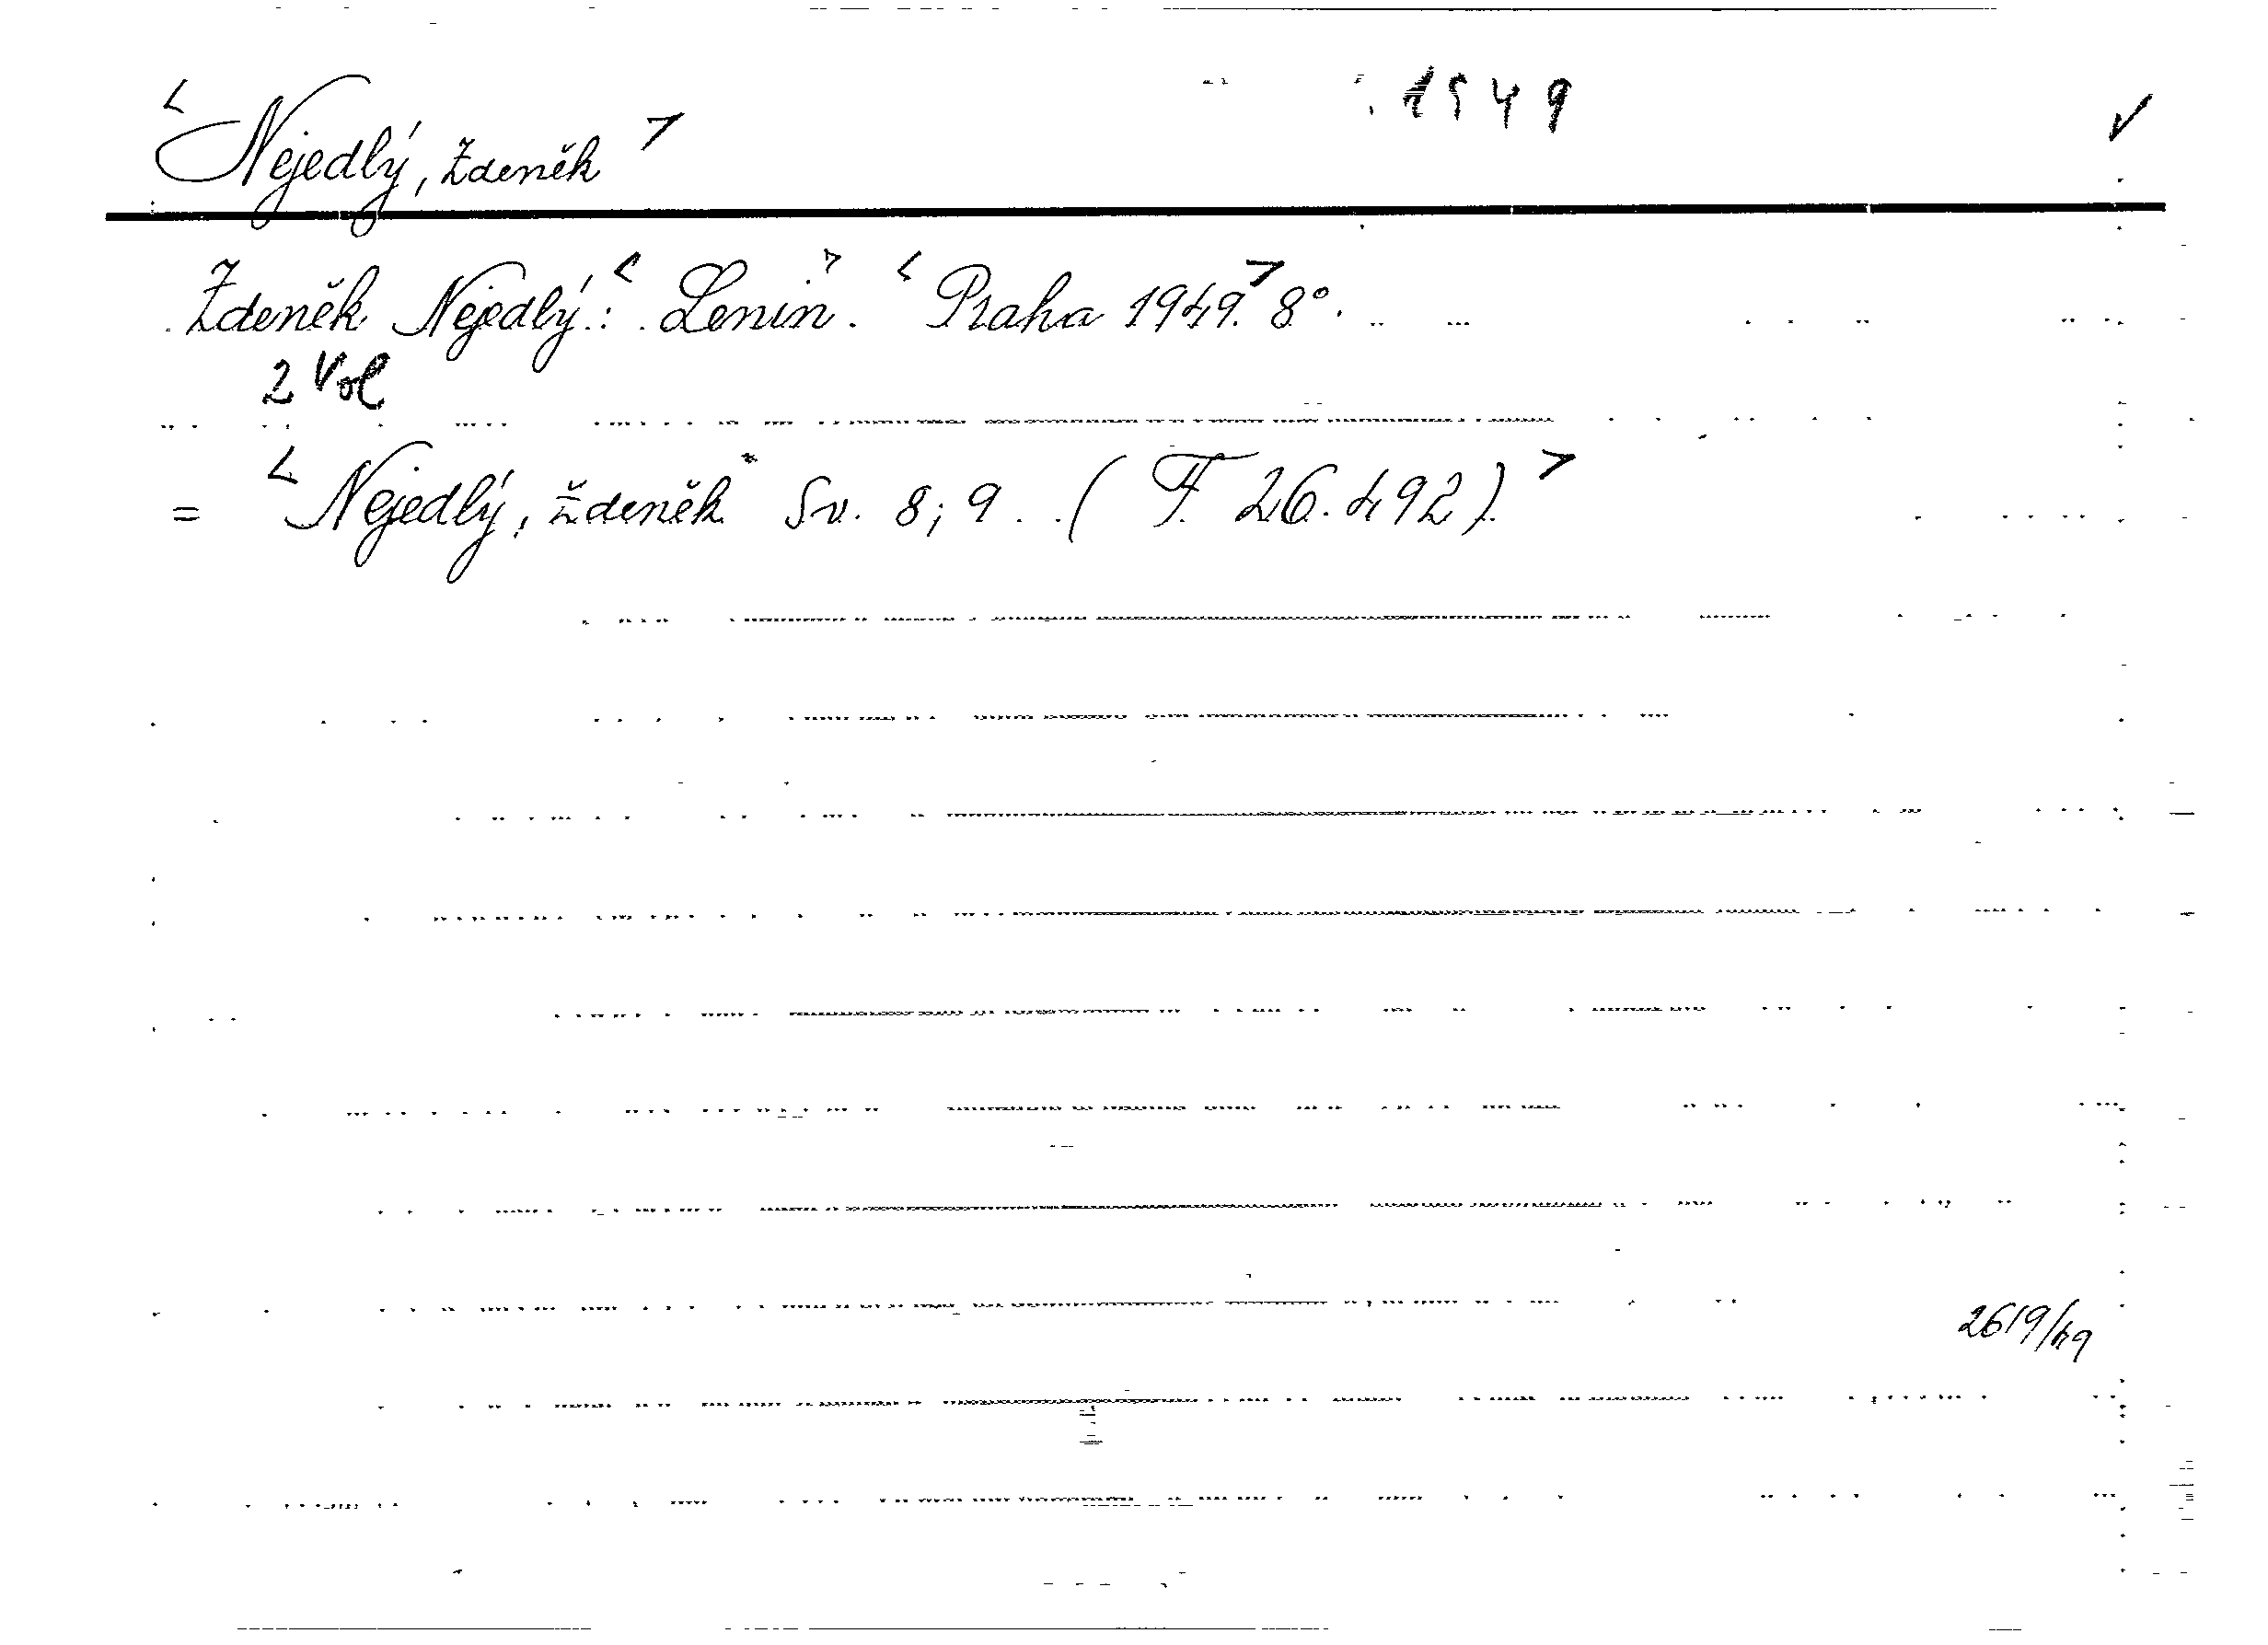 1949 ✓
< Nejedlý, Zdeněk >
Zdeněk Nejedlý: < Lenin. > < Praha 1949. > 8°.
2 Vol
= < Nejedlý, Zdeněk Sv. 8; 9. (F 26.492). >
2619/49